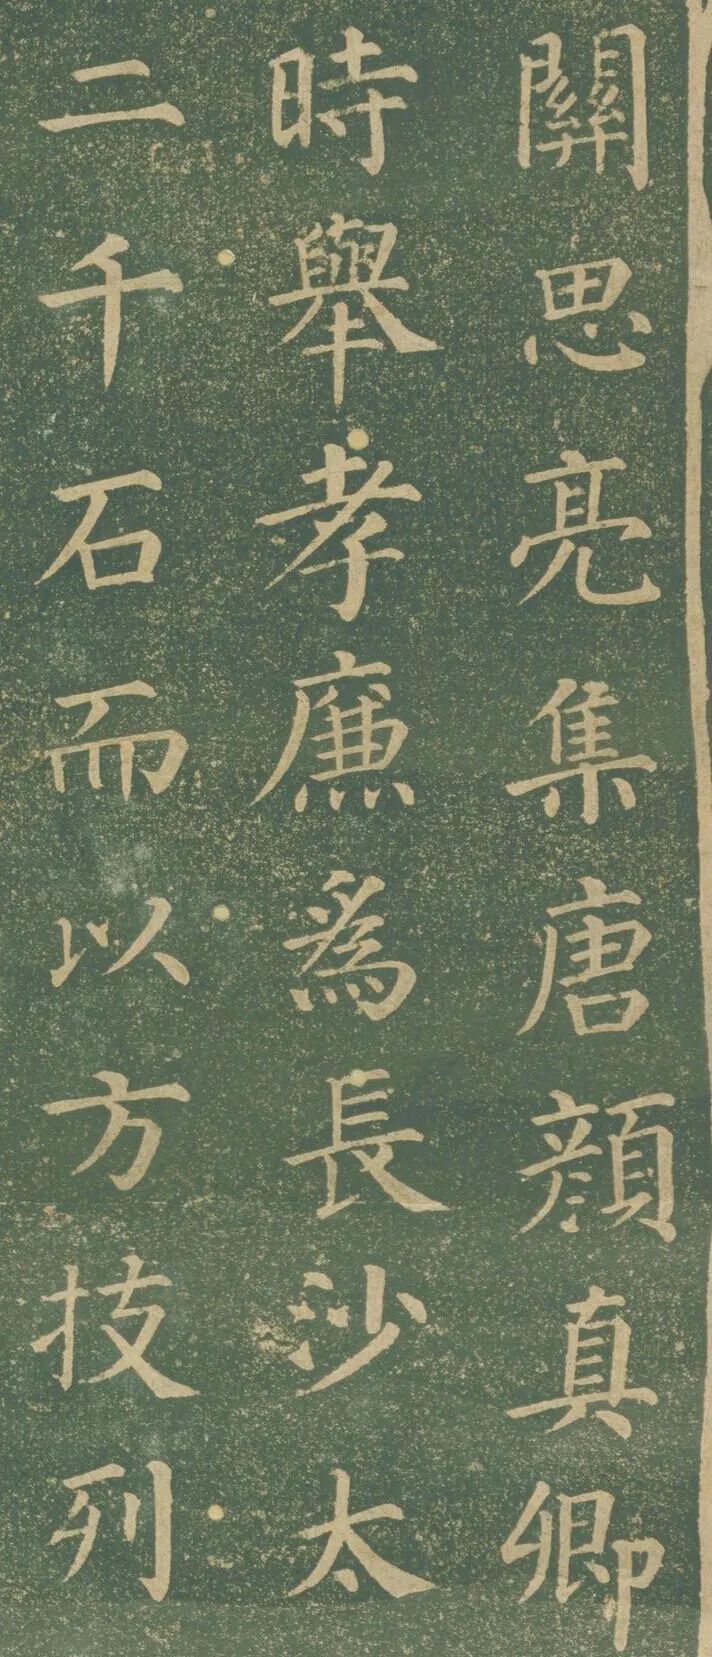 關思亮集唐顔真卿
時舉孝廉爲長沙太
二千石而以方技列